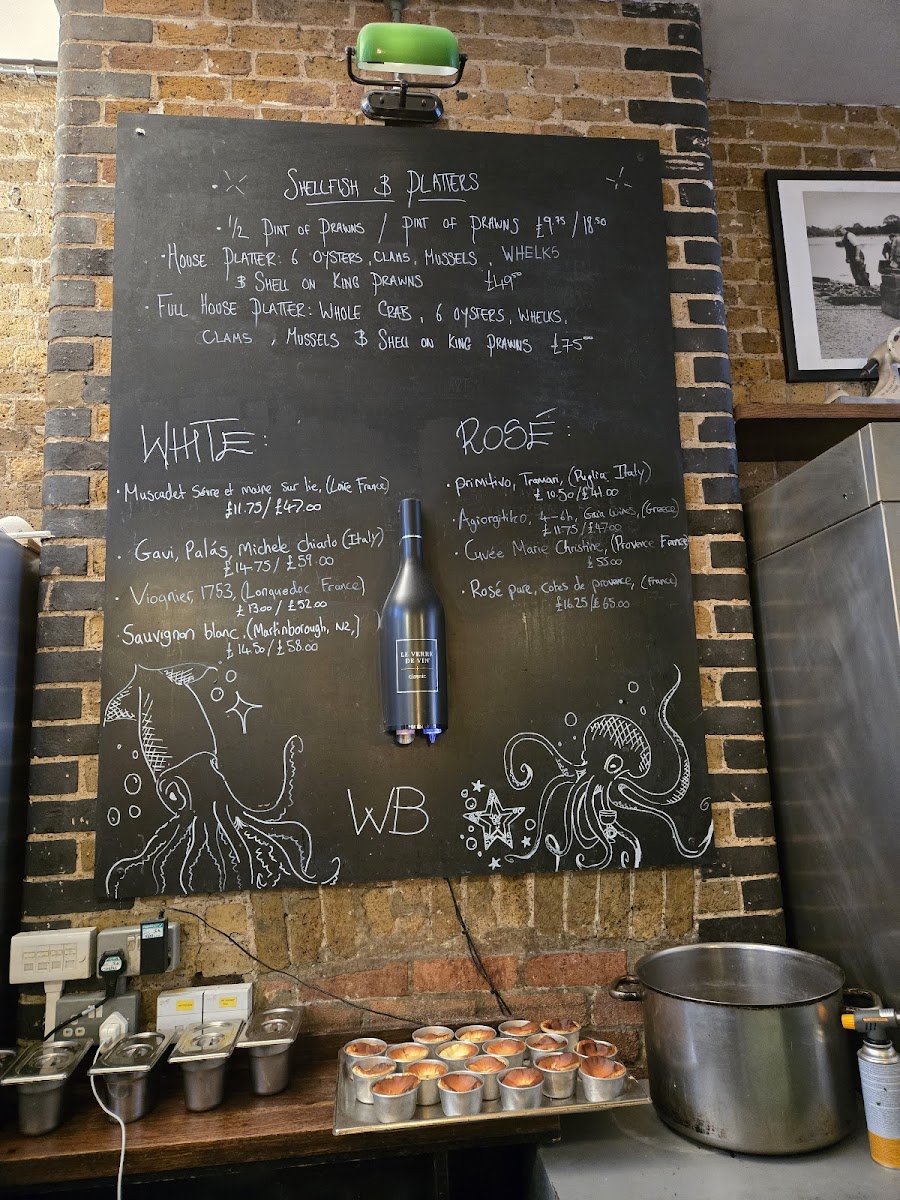 SHELLFISH & PLATTERS
· 1/2 PINT OF PRAWNS / PINT OF PRAWNS £9.75 / 18.50
· HOUSE PLATTER: 6 OYSTERS, CLAMS, MUSSELS, WHELKS
& SHELL ON KING PRAWNS £49.00
· FULL HOUSE PLATTER: WHOLE CRAB, 6 OYSTERS, WHELKS,
CLAMS, MUSSELS & SHELL ON KING PRAWNS £75.00
WHITE:
· Muscadet Sévre et maine sur lie, (Loire France)
£11.75 / £47.00
· Gavi, Palás, Michele Chiarlo (Italy)
£14.75 / £59.00
Viognier, 1753, (Languedoc France)
£13.00 / £52.00
· Sauvignon blanc, (Martinborough, NZ,)
£14.50 / £58.00
ROSÉ:
· Primitivo, Tramari, (Puglia Italy)
£10.50 / £41.00
· Agiorgitiko, 4-6h, Gaia Wines, (Greece)
£11.75 / £47.00
· Cuvée Marie Christine, (Provence France)
£55.00
· Rosé pure, cotes de provence, (France)
£16.25 / £65.00
LE VERRE
DE VIN
classic
WB